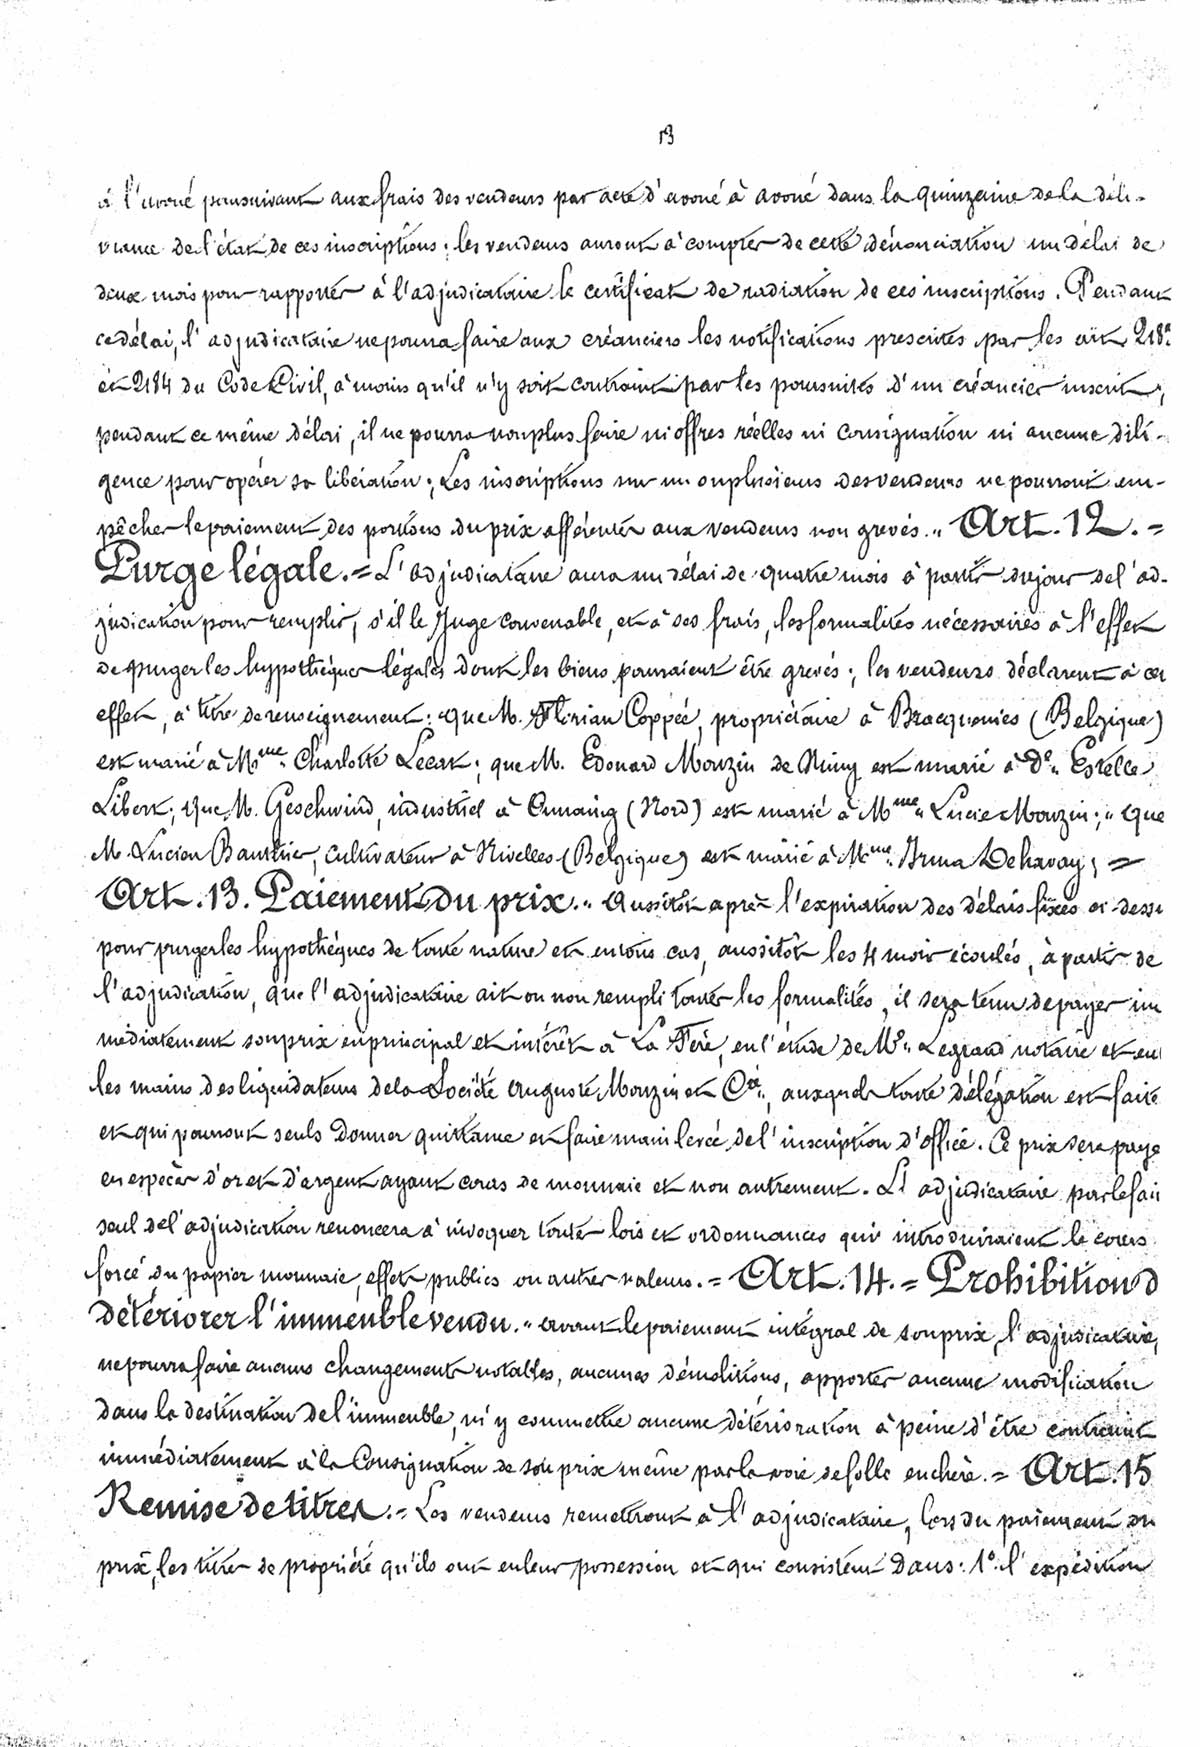 13
à l'avoué poursuivant aux frais des vendeurs par acte d'avoué à avoué dans la quinzaine de la déli-
vrance de l'état de ces inscriptions; les vendeurs auront à compter de cette dénonciation un délai de
deux mois pour rapporter à l'adjudicataire le certificat de radiation de ces inscriptions. Pendant
ce délai, l'adjudicataire ne pourra faire aux créanciers les notifications prescrites par les art.
et 2184 du Code Civil, à moins qu'il n'y soit contraint par les poursuites d'un créancier inscrit;
pendant ce même délai, il ne pourra non plus faire ni offres réelles ni consignation ni aucune dili-
gence pour opérer sa libération; Les inscriptions sur un ou plusieurs des vendeurs ne pourront em-
pêcher le paiement des portions du prix afférentes aux vendeurs non grevés. " Art. 12. =
Purge légale. = L'adjudicataire aura un délai de quatre mois à partir du jour de l'ad-
judication pour remplir, s'il le Juge convenable, et à ses frais, les formalités nécessaires à l'effet
de purger les hypothèques légales dont les biens pourraient être grevés; les vendeurs déclarent à cet
effet, à titre de renseignement: que M. Florian Coppée, propriétaire à Bracquenies (Belgique)
est marié à Mme Charlotte Lecat; que M. Edouard Mouzin de Nimy est marié à De. Estelle
Libert; que M. Geschwind, industriel à Onnaing (Nord) est marié à Mme Lucie Mouzin; " que
M. Lucien Bauthier, cultivateur à Nivelles (Belgique) est marié à Mme Irma Dehavay; =
Art. 13. Paiement du prix. " Aussitôt après l'expiration des délais fixés ci-dessu
pour purger les hypothèques de toute nature et en tous cas, aussitôt les 4 mois écoulés, à partir de
l'adjudication, que l'adjudicataire ait ou non rempli toutes les formalités, il sera tenu de payer im
médiatement son prix en principal et intérêt à La Fère, en l'étude de Me. Legrand notaire et en
les mains des liquidateurs de la Société Auguste Mouzin et Cie, auxquels toute délégation est faite
et qui pourront seuls donner quittance et faire main levée de l'inscription d'office. Ce prix sera payé
en espèces d'or et d'argent ayant cours de monnaie et non autrement. L'adjudicataire par le fait
seul de l'adjudication renoncera à invoquer toutes lois et ordonnances qui introduiraient le cours
forcé du papier monnaie, effets publics ou autres valeurs. = Art. 14. = Prohibition d
détériorer l'immeuble vendu. " Avant le paiement intégral de son prix, l'adjudicataire,
ne pourra faire aucuns changements notables, aucunes démolitions, apporter aucune modification
dans la destination de l'immeuble, n'y commettre aucune détérioration à peine d'être contraint
immédiatement à la Consignation de son prix même par la voie de folle enchère. = Art. 15
Remise de titres. = Les vendeurs remettront à l'adjudicataire, lors du paiement du
prix, les titres de propriété qu'ils ont en leur possession et qui consistent dans: 1° l'expédition